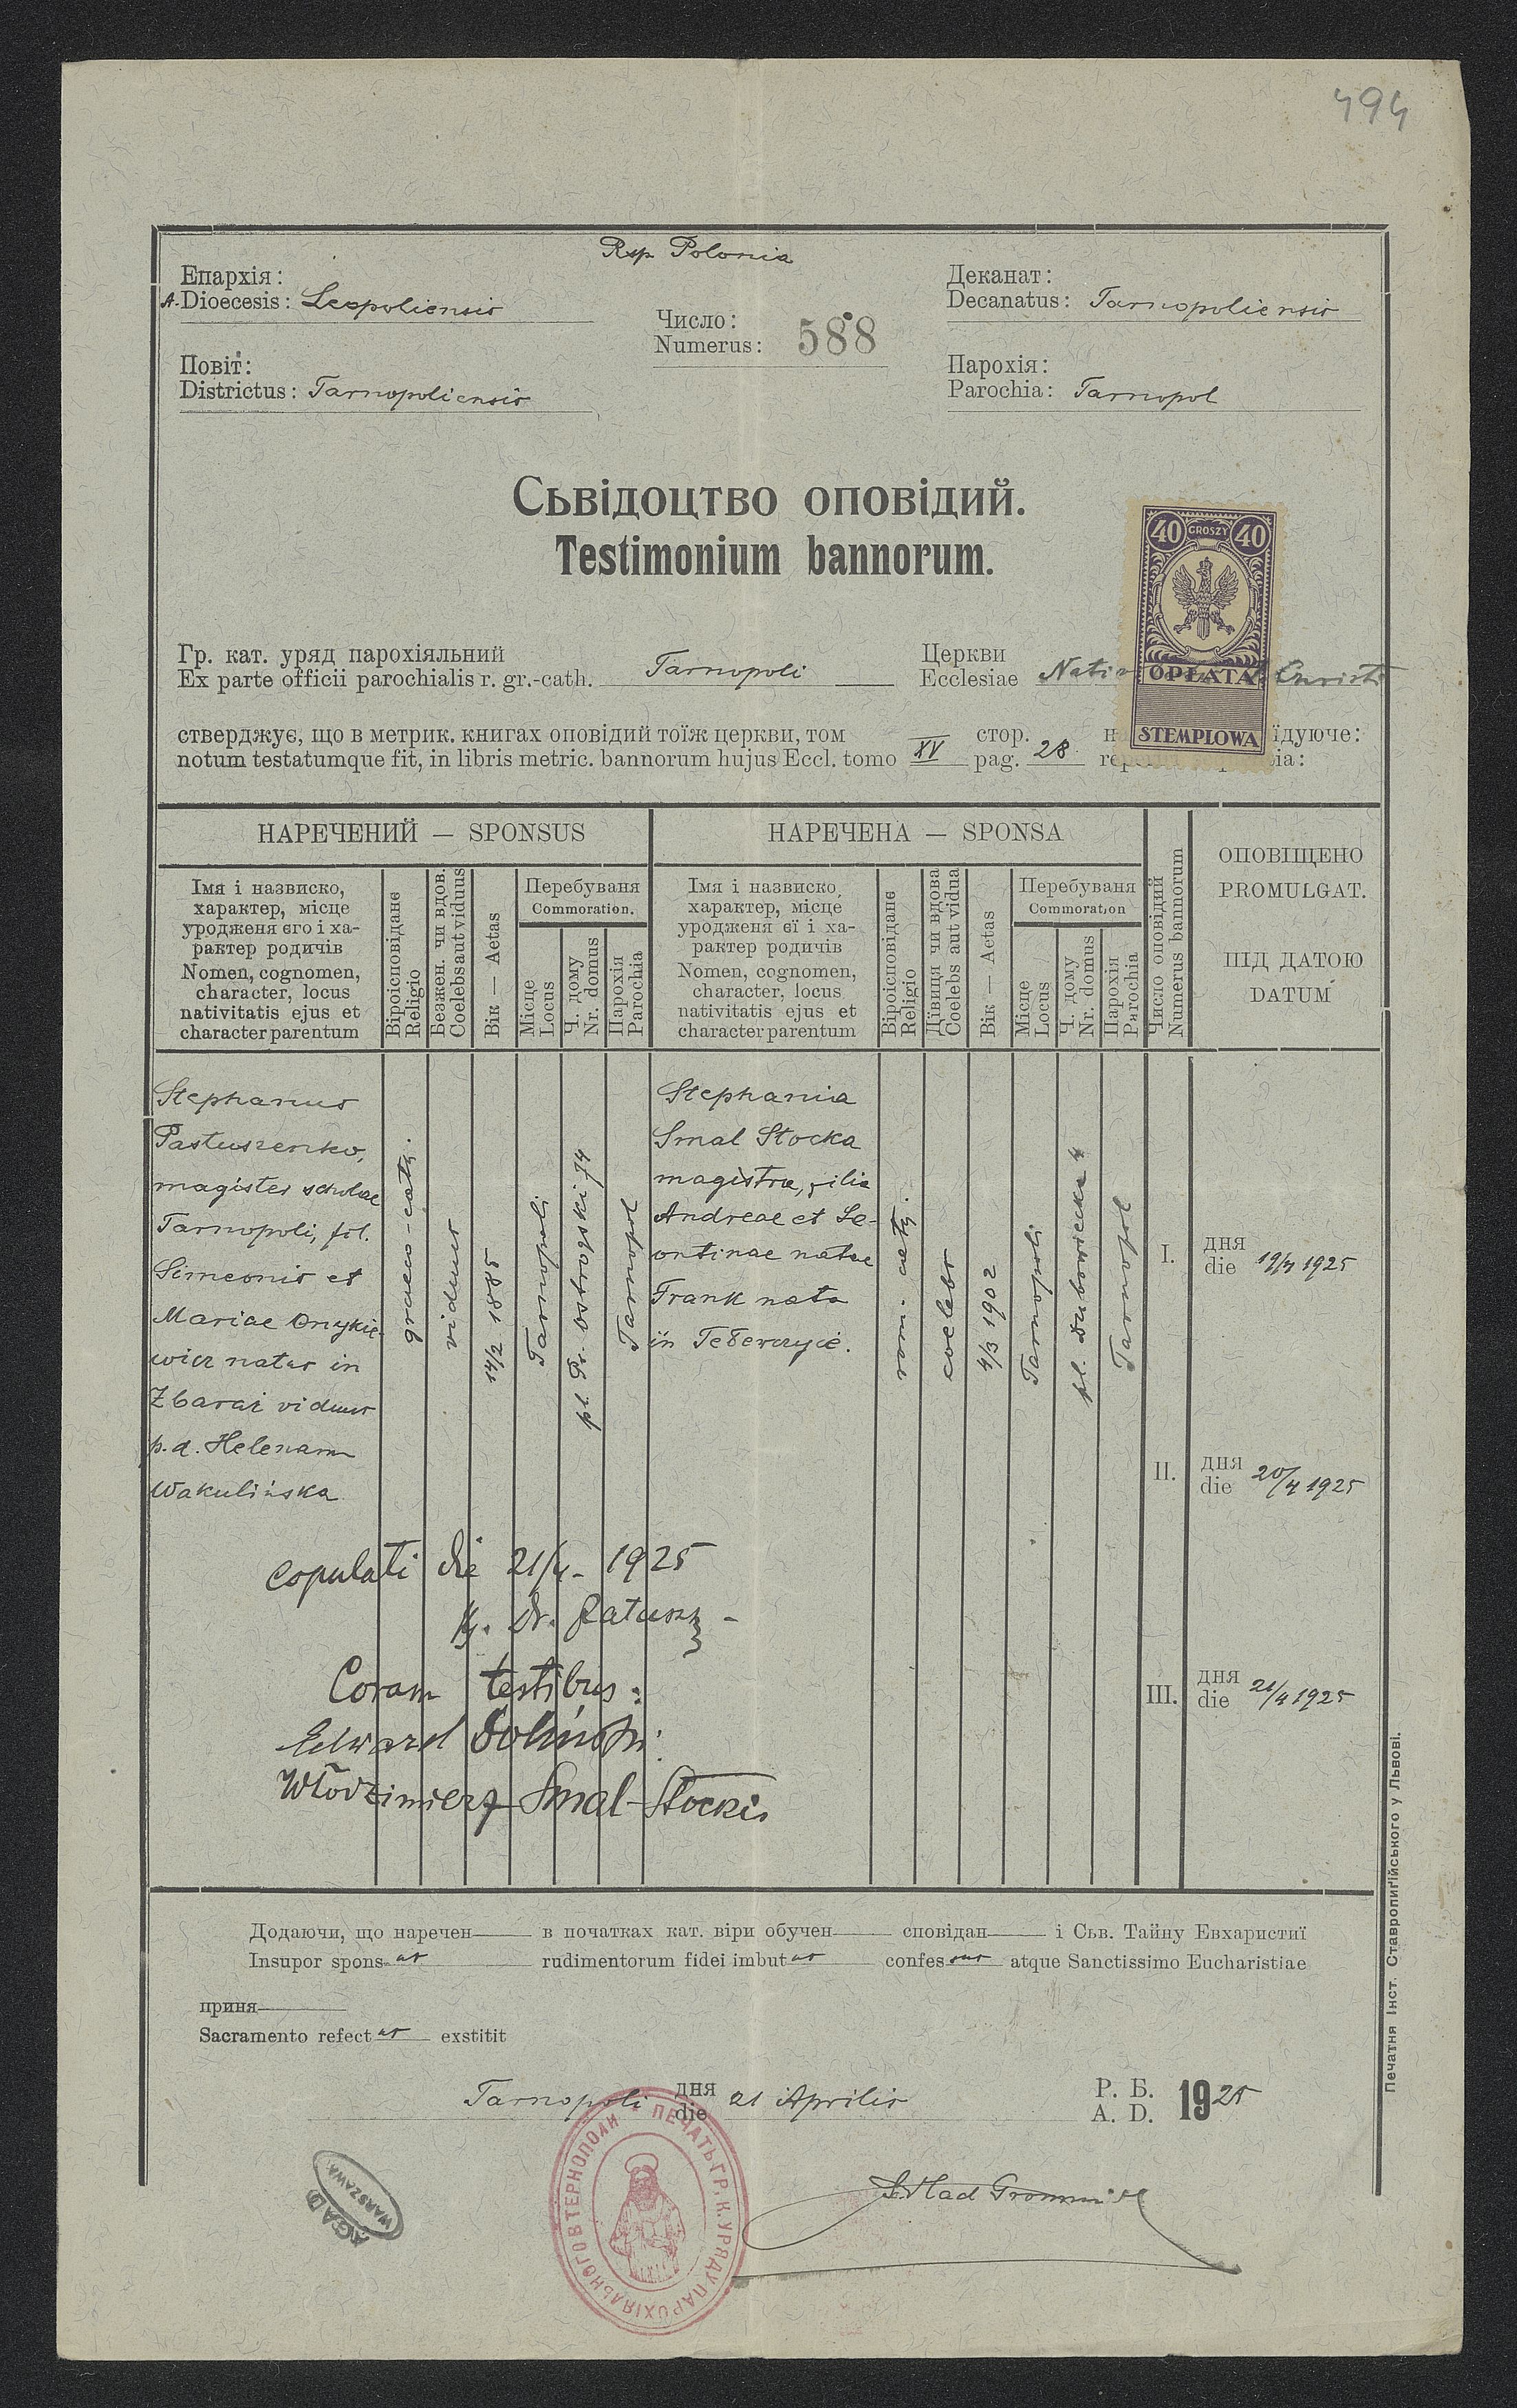 494
Rsp. Polonia
Епархія:
A. Dioecesis: Leopoliensis
Деканат:
Decanatus: Tarnopoliensis
Число:
Numerus: 588
Повіт:
Districtus: Tarnopoliensis
Парохія:
Parochia: Tarnopol
Сьвідоцтво оповідий.
Testimonium bannorum.
40 GROSZY 40
OPŁATA
STEMPLOWA
Гр. кат. уряд парохіяльний
Ex parte officii parochialis r. gr.-cath. Tarnopoli
Церкви
Ecclesiae Nati Christi
стверджує, що в метрик. книгах оповідий тоїж церкви, том стор. н ідуюче:
notum testatumque fit, in libris metric. bannorum hujus Eccl. tomo XV pag. 28 rep ia:
НАРЕЧЕНИЙ — SPONSUS
НАРЕЧЕНА — SPONSA
Імя і назвиско,
характер, місце
уродженя єго і ха-
рактер родичів
Nomen, cognomen,
character, locus
nativitatis ejus et
character parentum
Віроісповідане
Religio
Безжен. чи вдов.
Coelebs aut viduus
Вік — Aetas
Перебуваня
Commoration.
Місце
Locus
Ч. дому
Nr. domus
Парохія
Parochia
Імя і назвиско,
характер, місце
уродженя єї і ха-
рактер родичів
Nomen, cognomen,
character, locus
nativitatis ejus et
character parentum
Віроісповідане
Religio
Дївиця чи вдова
Coelebs aut vidua
Вік — Aetas
Перебуваня
Commoration
Місце
Locus
Ч. дому
Nr. domus
Парохія
Parochia
Число оповідий
Numerus bannorum
ОПОВІЩЕНО
PROMULGAT.
ПІД ДАТОЮ
DATUM
Stephanus
Pastuszenko,
magister scholae
Tarnopoli, fil.
Simeonis et
Mariae Onykie-
wicz natus in
Zbaraż viduus
p. d. Helenam
Wakulińska
graeco-cath.
viduus
14/2 1885
Tarnopoli
pl. Pr. Ostrogski 74
Tarnopol
Stephania
Smal Stocka
magistra, filia
Andreae et Le-
ontinae natae
Frank nata
in
rom. cath.
coelebs
4/3 1902
Tarnopoli
pl. Dubowiecka 4
Tarnopol
I. дня
die 19/4 1925
II. дня
die 20/4 1925
III. дня
die 21/4 1925
copulati die 21/4 - 1925
Dr.
Coram testibus:
Edward
Włodzimierz Smal-Stocki
Додаючи, що наречен в початках кат. віри обучен сповідан і Сьв. Тайну Евхаристиї
Insupor spons us rudimentorum fidei imbut us confes sus atque Sanctissimo Eucharistiae
приня
Sacramento refect us exstitit
Tarnopoli дня
die 21 Aprilis Р. Б.
A. D. 1925
ПЕЧАТЬ ГР. К. УРЯДУ ПАРОХІЯЛЬНОГО В ТЕРНОПОЛИ
AGAD
WARSZAWA
Печатня Інст. Ставропигійського у Львові.